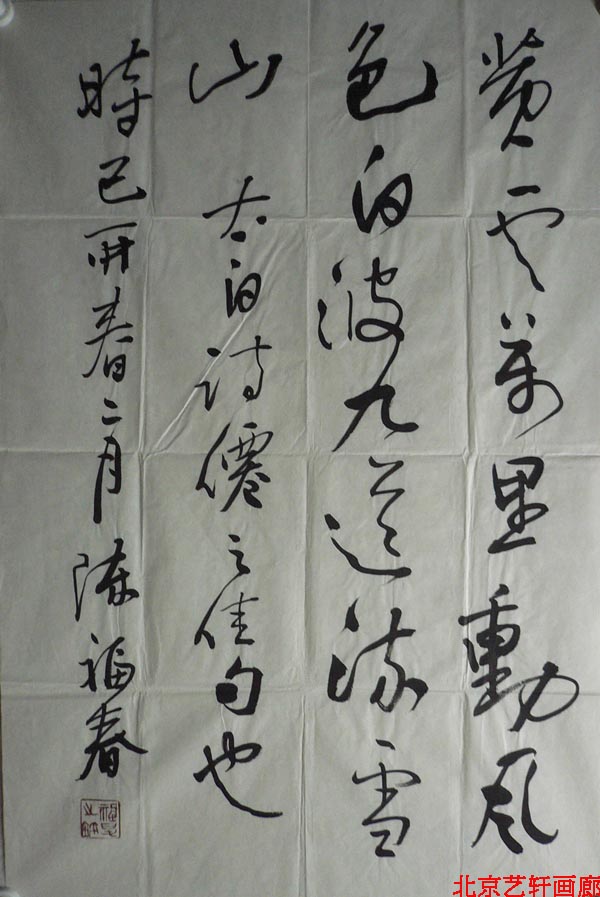 黄云万里動风
色白波九道流雪
山 太白詩僊之佳句也
時己丑春二月 陈福春
北京艺轩画廊